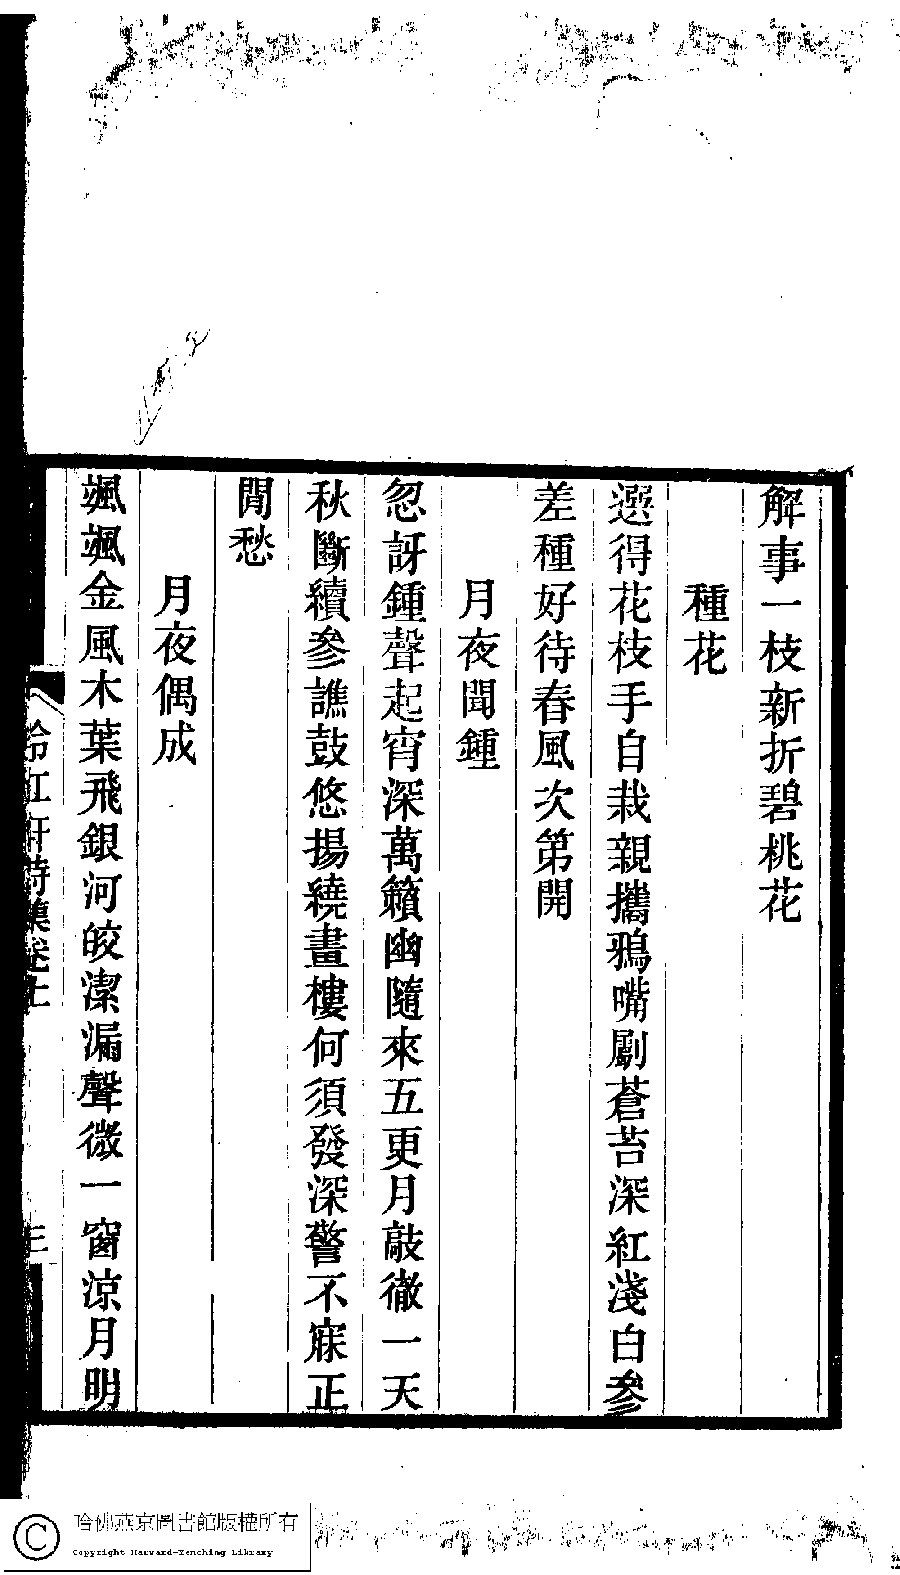 解事一枝新折碧桃花
種花
選得花枝手自栽親攜鴉嘴劚蒼苔深紅淺白參
差種好待春風次第開
月夜聞鍾
忽訝鍾聲起宵深萬籟幽隨來五更月敲徹一天
秋斷續參譙鼓悠揚繞畫樓何須發深警不寐正
閒愁
月夜偶成
颯颯金風木葉飛銀河皎潔漏聲微一窗涼月明
冷紅軒詩集卷上
三
哈佛燕京圖書館版權所有
Copyright Harvard-Yenching Library